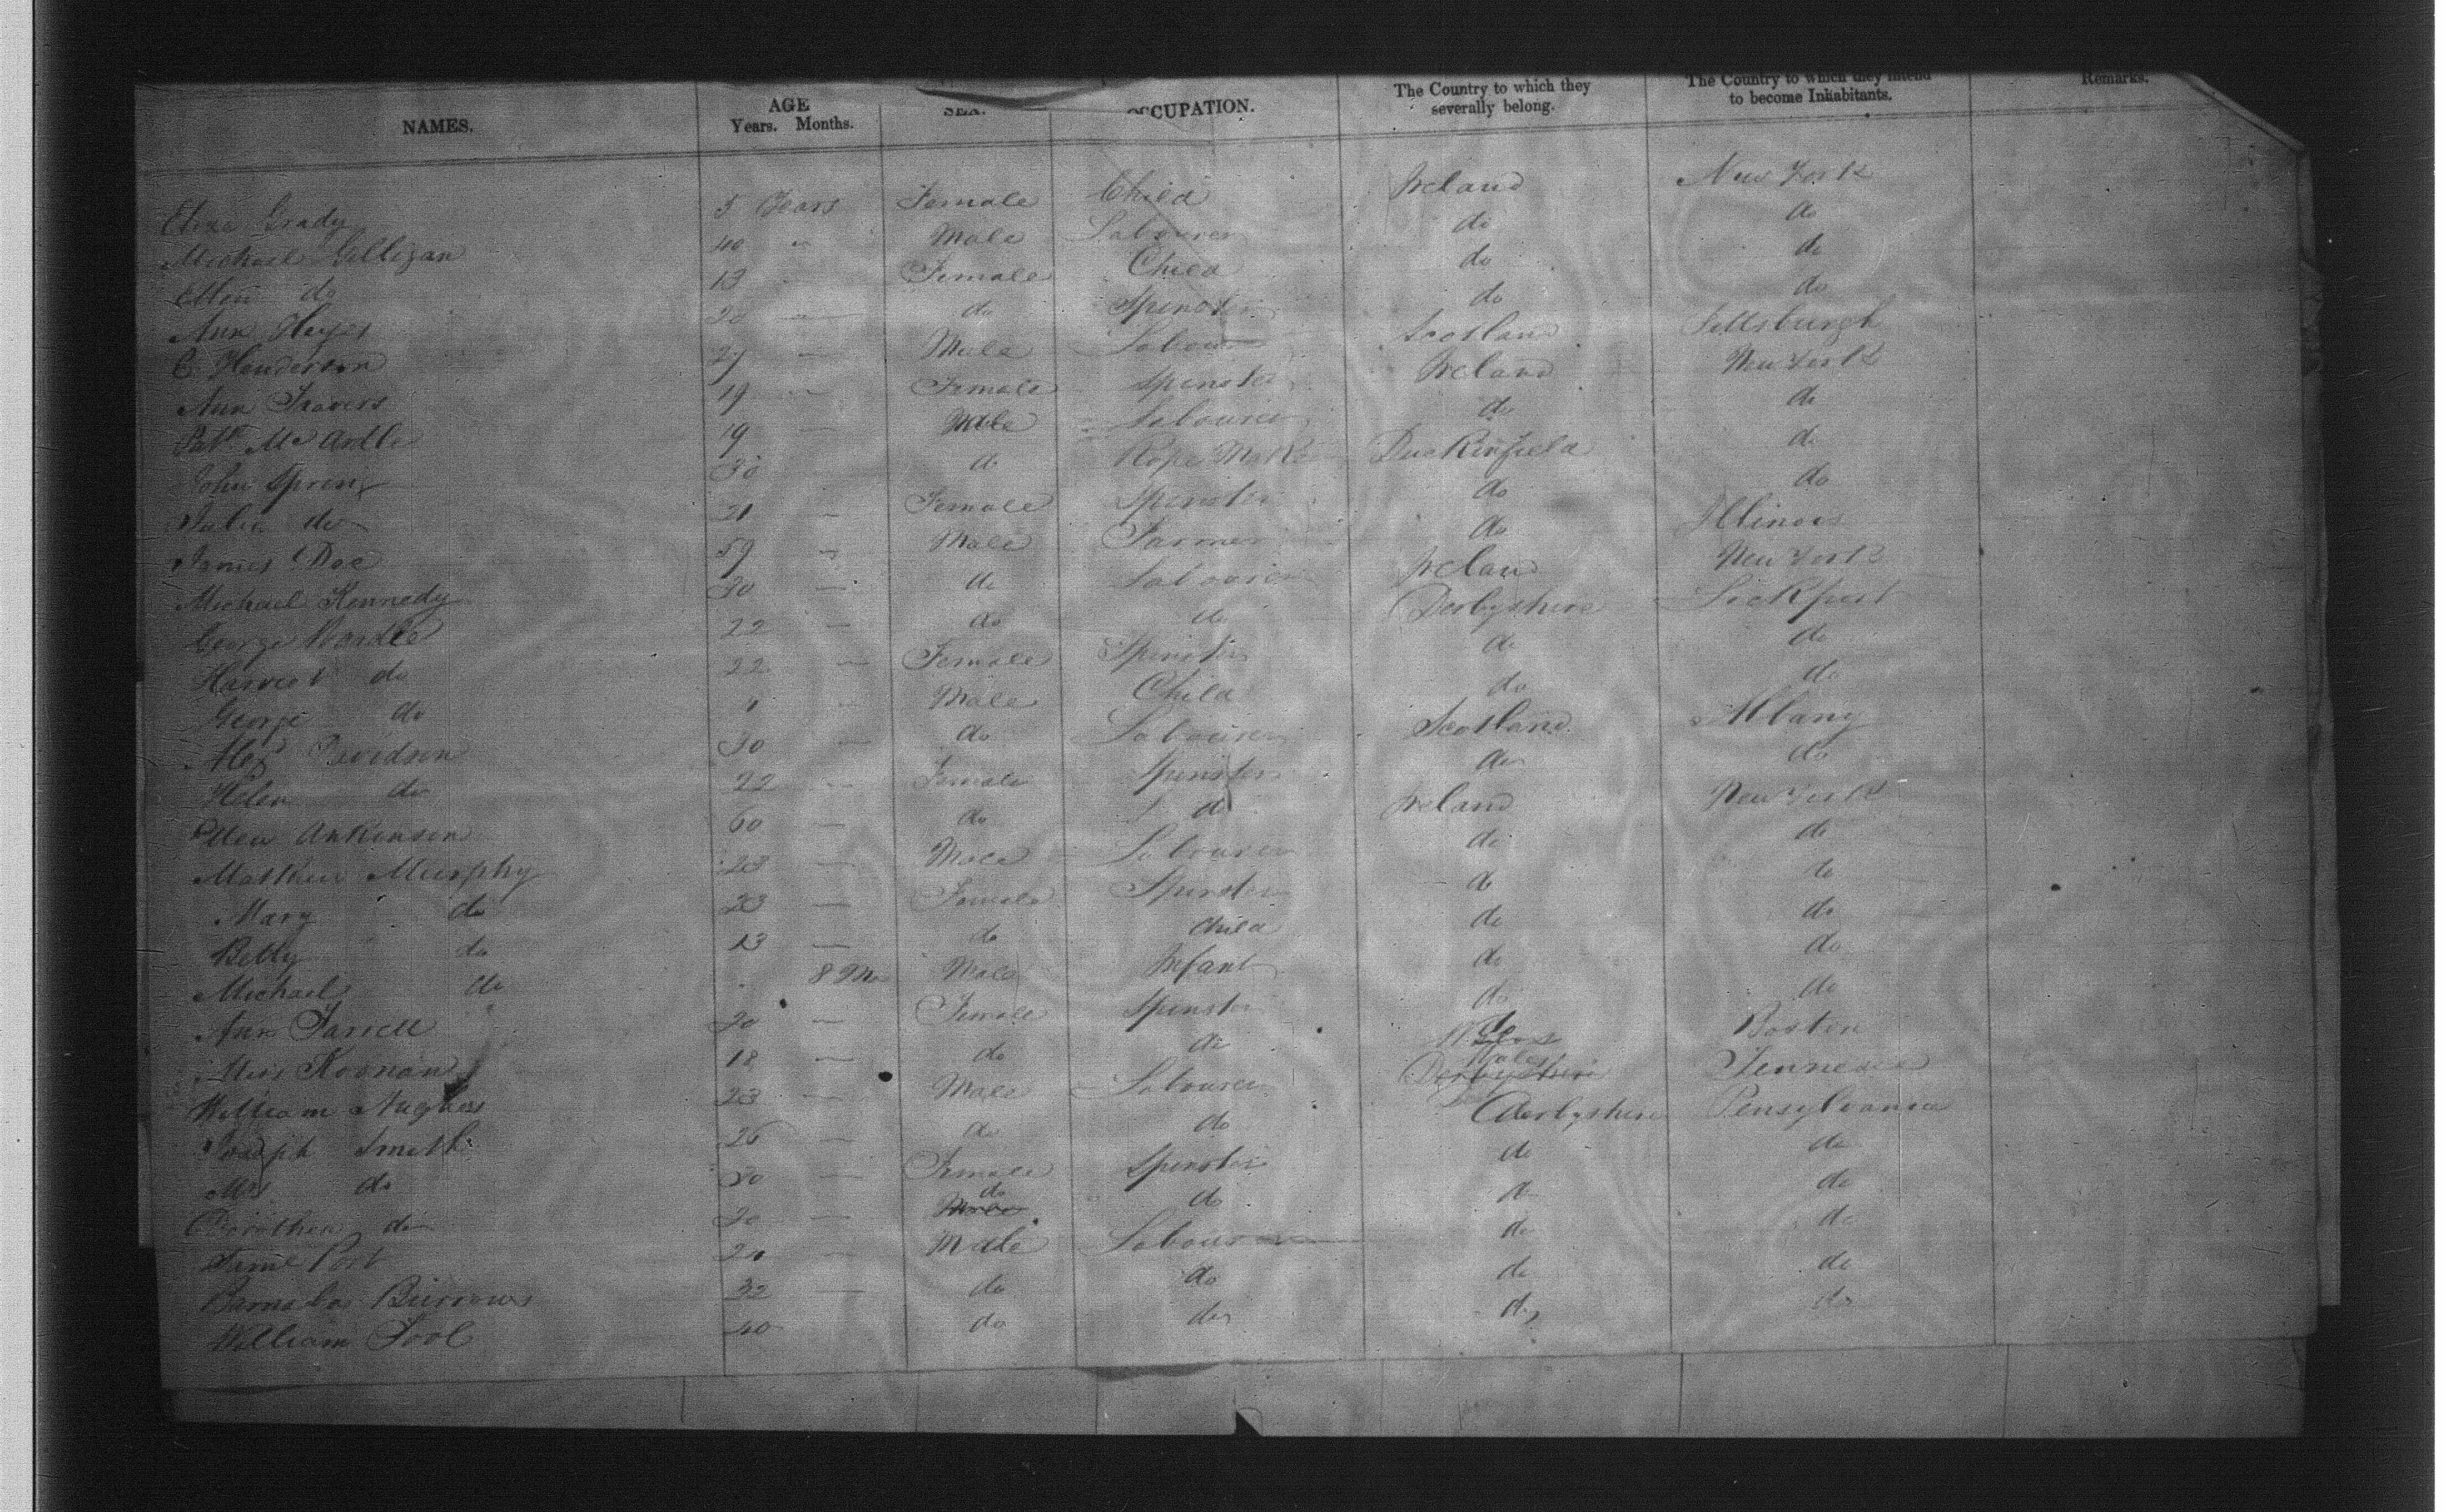 NAMES. AGE Years. Months. SEX. OCCUPATION. The Country to which they severally belong. The Country to which they intend to become Inhabitants. Remarks.
Eliza Grady 5 Years Female Child Ireland New York
Michael Gilligan 40 " Male Labourer do do
Ellen do 13 Female Child do do
Ann Hayes 20 — do Spinster do do
C. Henderson 27 — Male Labourer Scotland Pittsburgh
Ann Travers 19 — Female Spinster Ireland New York
Patk McArdle 19 — Male Labourer do do
John Spring 30 do Rope Make Duckinfield do
Julia do 21 — Female Spinster do do
James Doe 59 — Male Farmer do Illinois
Michael Kennedy 30 — do Labourer Ireland New York
George Wardle 22 — do do Derbyshire Lockport
Harriet do 22 — Female Spinster do do
George do Male Child do do
Alexr Davidson 30 — do Labourer Scotland Albany
Helen do 22 — Female Spinster do do
Ellen Ankinson 60 — do do Ireland New York
Matthew Murphy 23 — Male Labourer do do
Mary do 23 — Female Spinster do do
Betty do 13 — do Child do do
Michael do 8 Mo Male Infant do do
Ann Farrell 20 — Female Spinster do do
Miss Koonan 18 — do do do Boston
William Hughes 23 — Male Labourer Wales Derbyshire Tennessee
Joseph Smith 26 — do do Derbyshire Pensylvania
Mrs do 30 — Female Spinster do do
Dorothea do 20 — do do do do
Port 21 — Male Labourer do do
Barnabas Burrows 32 — do do do do
William Pool 40 do do do do